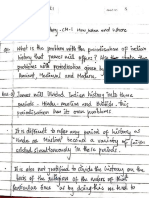 History - CH-1 How, When and Where
What is the problem with the periodisation of Indian
history that James mill offers?
problems with periodisation given by
Ancient, Medieval and Modern.
James mill divided Indian history into three
periods - Hindu - muslim and British.
It is difficult to refer any period of history as
Hindu or Muslim because a variety of faiths
existed simultaneously in these periods.
It is also not justified to divide the history on the
basis of the religion of the rulers of that
particular time as by doing this we tend to